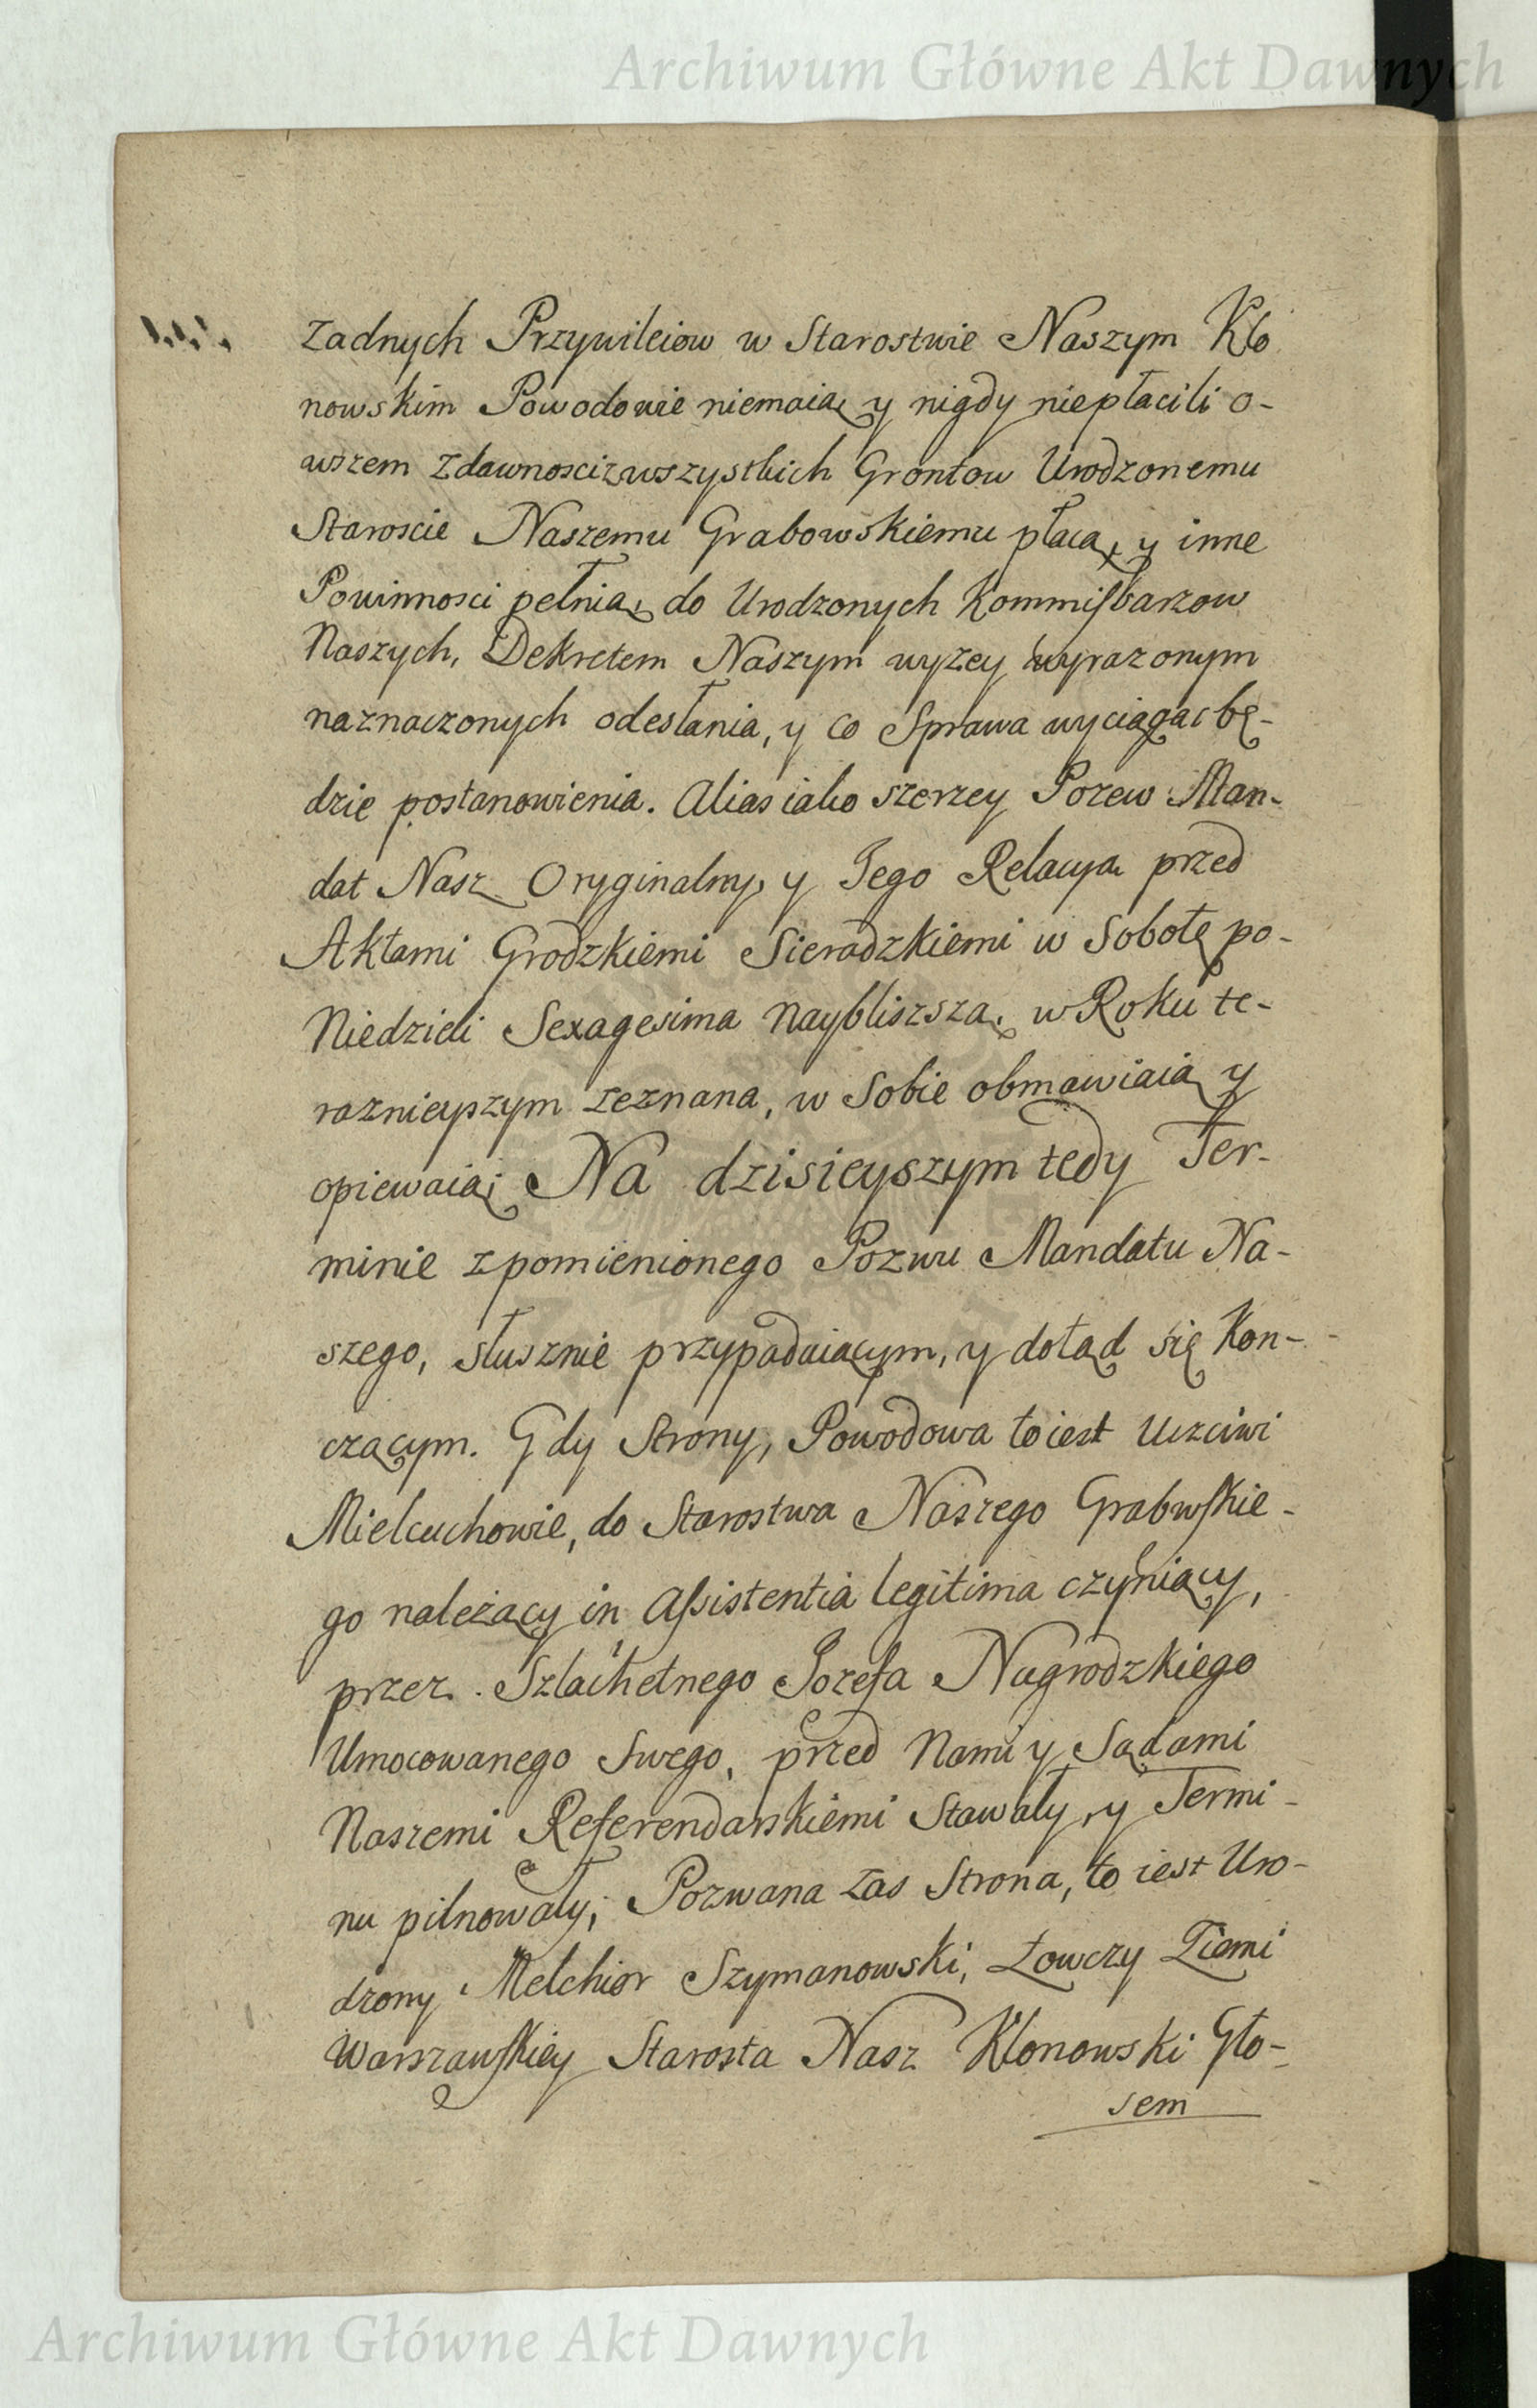 Archiwum Główne Akt Dawnych
Zadnych Przywileiow w Starostwie Naszym Kło
nowskim Powodowie niemaią y nigdy niepłacili o-
wszem zdawnosci zwszystkich Grontow Urodzonemu
Staroscie Naszemu Grabowskiemu płacą, y inne
Powinnosci pełnią, do Urodzonych Kommissarzow
Naszych, Dekretem Naszym wyzey wyrazonym
naznaczonych odesłania, y co Sprawa wyciągac bę-
dzie postanowienia. Alias iako szerzey Pozew Man-
dat Nasz Oryginalny, y Jego Relacya przed
Aktami Grodzkiemi Sieradzkiemi w Sobotę po-
Niedzieli Sexagesima naybliszszą, w Roku te-
raznieyszym zeznana, w Sobie obmawiaią y
opiewaią; Na dzisieyszym tedy Ter-
minie zpomienionego Pozwu Mandatu Na-
szego, słusznie przypadaiącym, y dotąd się Kon-
czącym. Gdy Strony, Powodowa to iest Uczciwi
Mielcuchowie, do Starostwa Naszego Grabwskie-
go należący in Assistentia legitima czyniący,
przez Szlachetnego Jozefa Nagrodzkiego
Umocowanego Swego, przed Nami y Sądami
Naszemi Referendarskiemi Stawały, y Termi-
nu pilnowały; Pozwana zas Strona, to iest Uro-
dzony Melchior Szymanowski, Łowczy Ziemi
Warszawskiey Starosta Nasz Klonowski Gło-
sem
Archiwum Główne Akt Dawnych